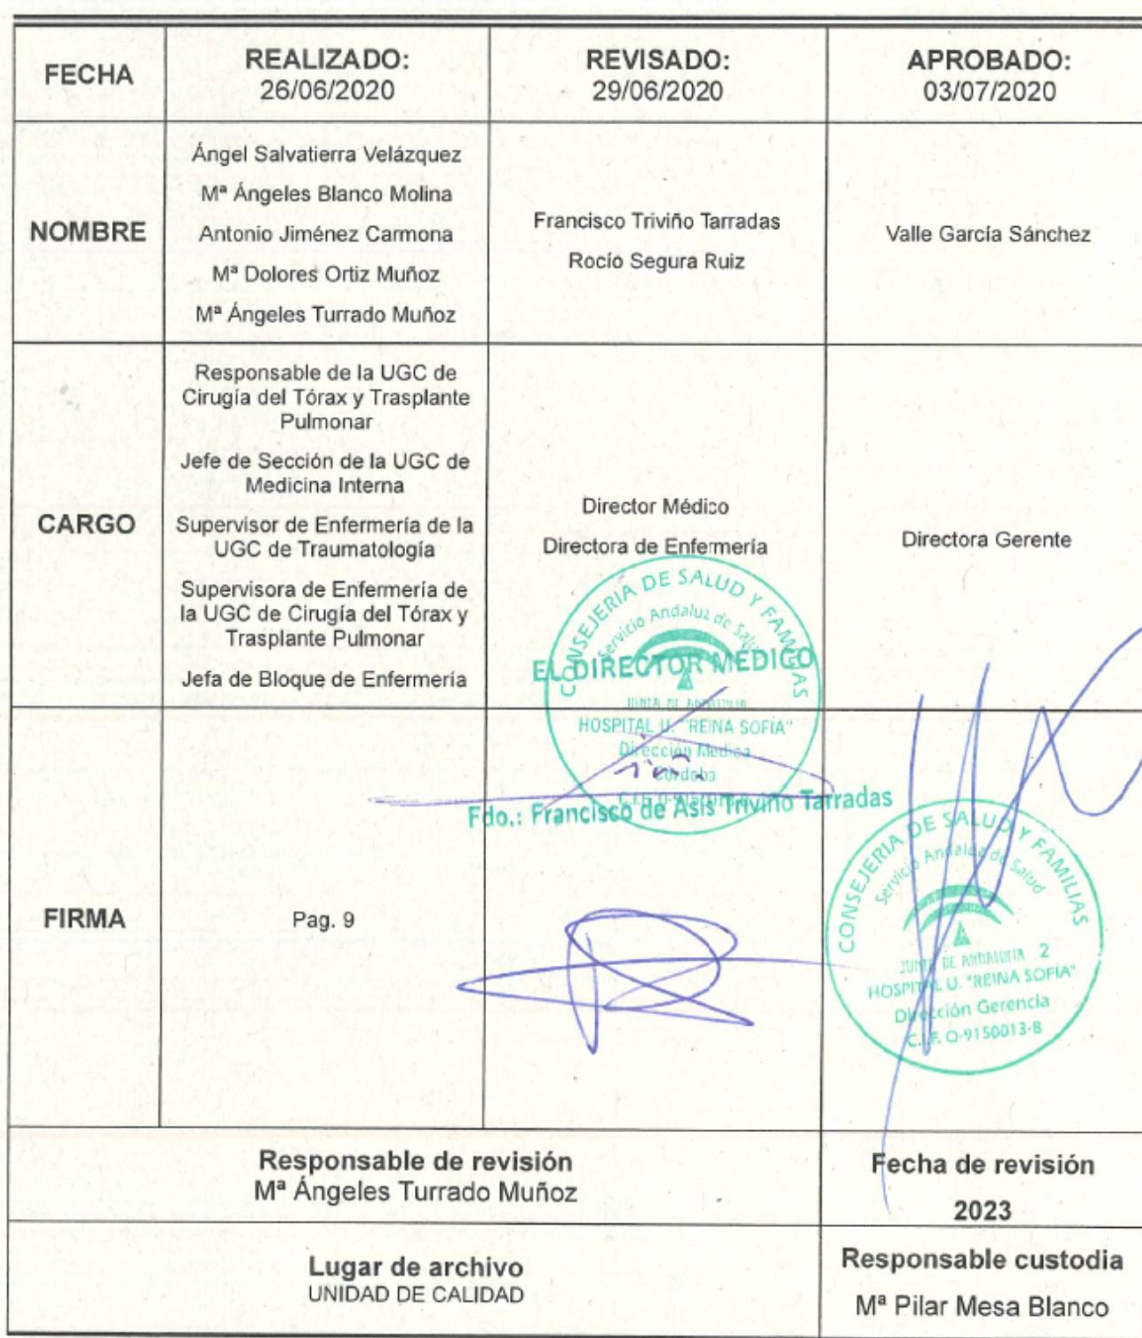 FECHA
REALIZADO:
26/06/2020
REVISADO:
29/06/2020
APROBADO:
03/07/2020
NOMBRE
Ángel Salvatierra Velázquez
Mª Ángeles Blanco Molina
Antonio Jiménez Carmona
Mª Dolores Ortiz Muñoz
Mª Ángeles Turrado Muñoz
Francisco Triviño Tarradas
Rocío Segura Ruiz
Valle García Sánchez
CARGO
Responsable de la UGC de
Cirugía del Tórax y Trasplante
Pulmonar
Jefe de Sección de la UGC de
Medicina Interna
Supervisor de Enfermería de la
UGC de Traumatología
Supervisora de Enfermería de
la UGC de Cirugía del Tórax y
Trasplante Pulmonar
Jefa de Bloque de Enfermería
Director Médico
Directora de Enfermería
Directora Gerente
CONSEJERIA DE SALUD Y FAMILIAS
Servicio Andaluz de Salud
EL DIRECTOR MEDICO
JUNTA DE ANDALUCIA
HOSPITAL U. "REINA SOFÍA"
Dirección Medica
Córdoba
Fdo.: Francisco de Asis Triviño Tarradas
FIRMA
Pag. 9
CONSEJERIA DE SALUD Y FAMILIAS
Servicio Andaluz de Salud
JUNTA DE ANDALUCIA 2
HOSPITAL U. "REINA SOFÍA"
Dirección Gerencia
C.I.F. Q-9150013-B
Responsable de revisión
Mª Ángeles Turrado Muñoz
Fecha de revisión
2023
Lugar de archivo
UNIDAD DE CALIDAD
Responsable custodia
Mª Pilar Mesa Blanco